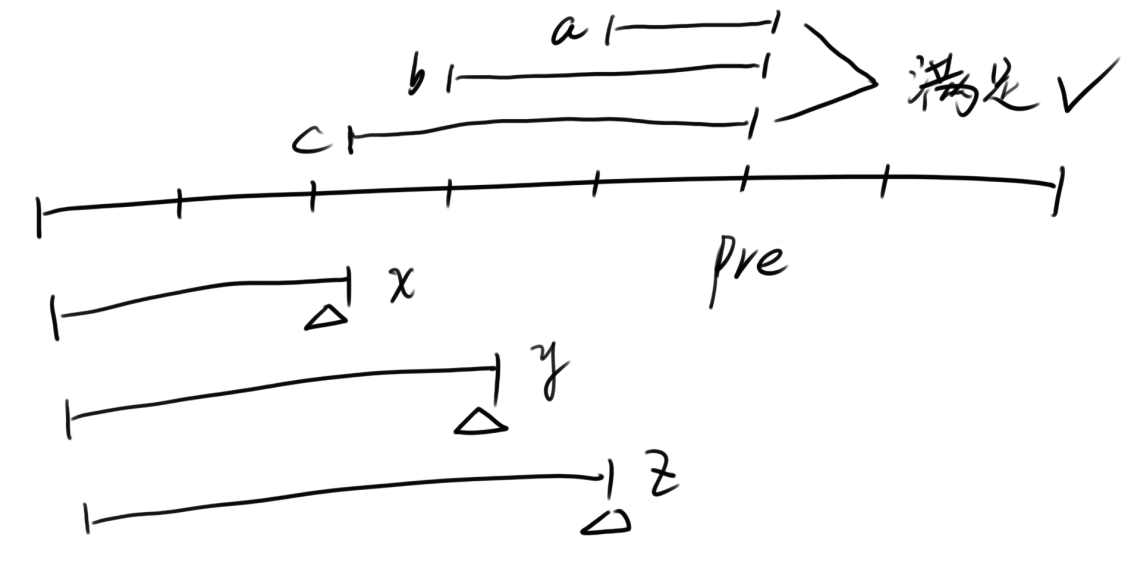 a
b
满足 ✓
c
pre
x
y
z